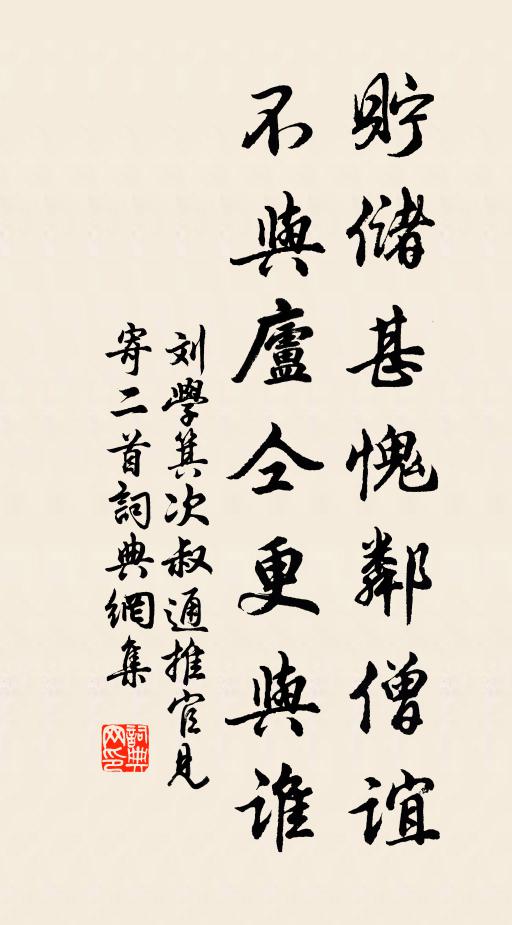 貯儲甚愧鄰僧誼
不與廬仝更與誰
刘學箕次叔通推官見
寄二首詞典網集
詞典网印